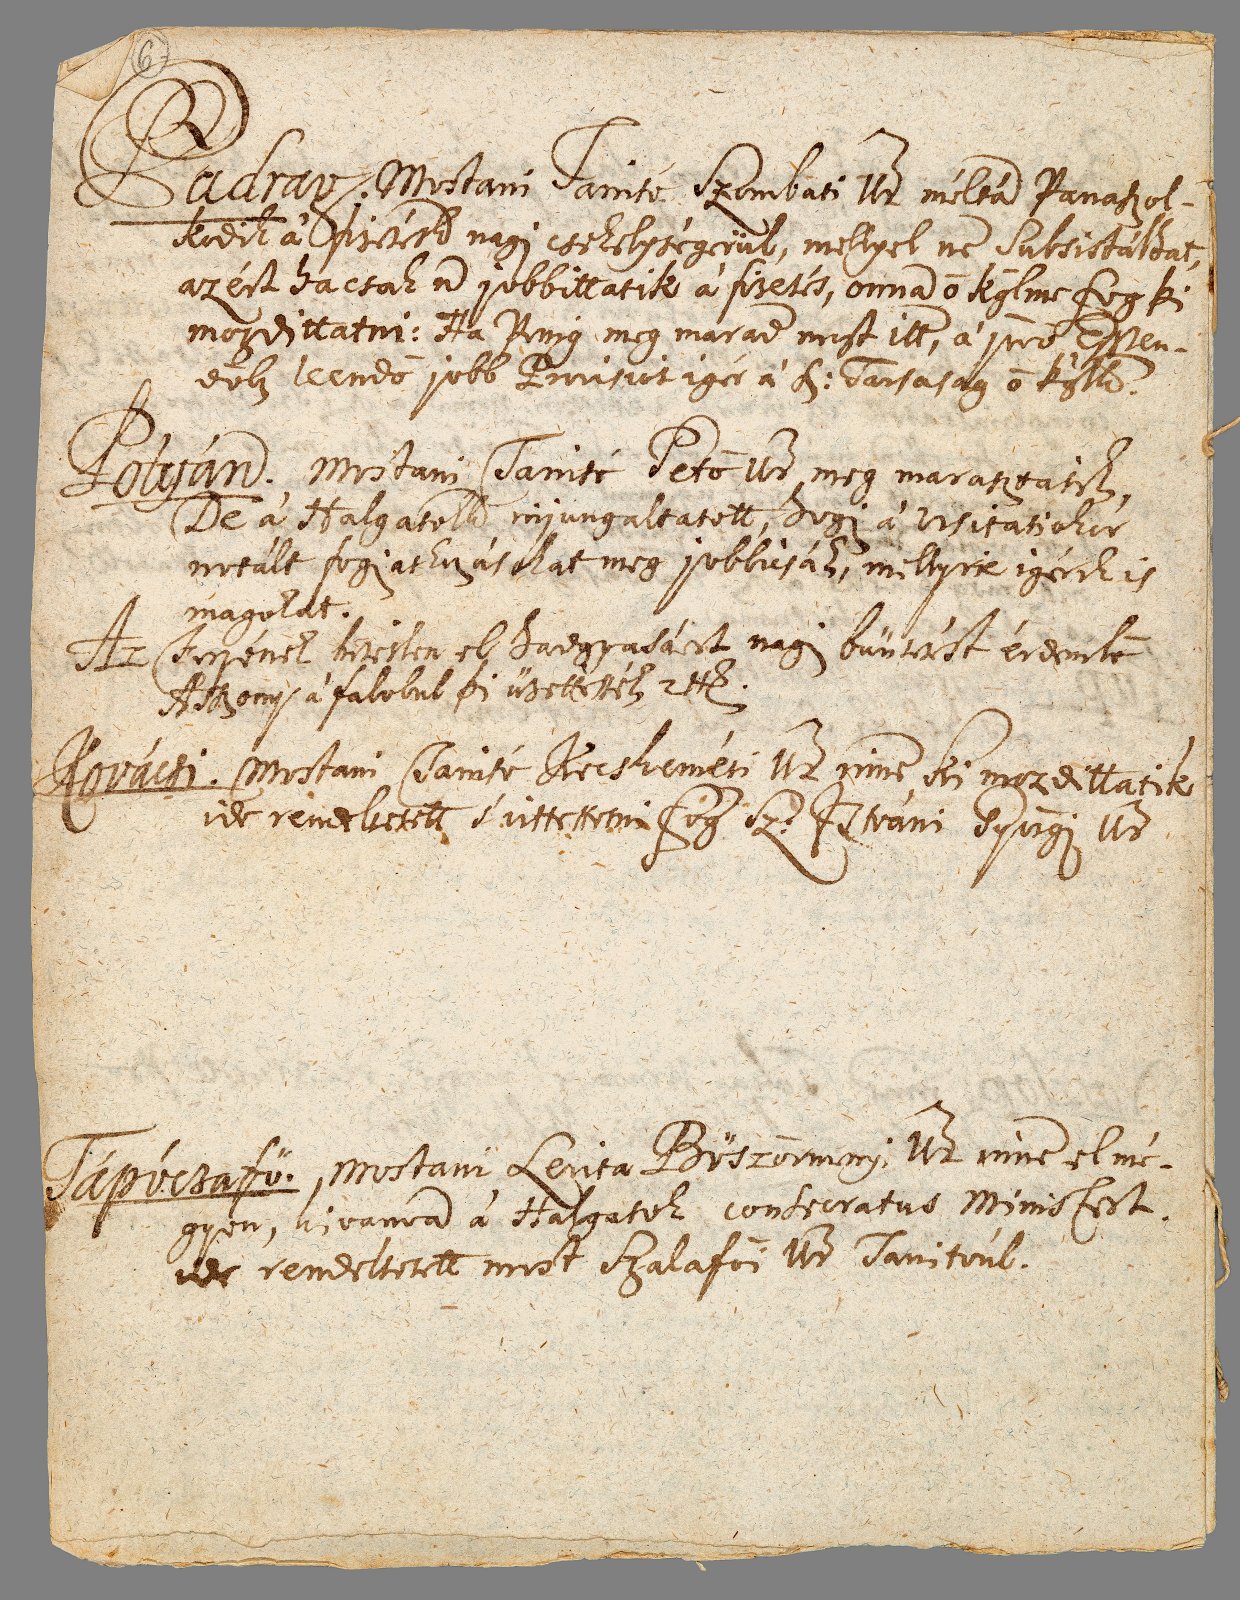 6
Padrag. Mostani Tanitó Szombati Ur méltán Panaszol-
kodik á fizetésnek nagj csekélységérül, mellyel nem Subsistálhat,
azért ha csak nem jobbittatik á fizetés, onnan ő kglme fog ki
mozdittatni: Ha Pnig meg marad most itt, á jövő Eszten-
dőb leendő jobb Provisiot igér á Sz: Tarsasag ő kglk.
Pólyán. Mostani Tanitó Pető Ur meg marasztatik,
De á Halgatokk injungaltatott, hogj á visitatiokor
notált fogjatkozásokat meg jobbitsák, mellyre igérik is
magokat.
Az Istenek hitetlen el hadgyasáért nagj büntetést érdemlő
Aszony á falubul ki üzettessék
Kovácsi. Mostani Tanitó Kecskeméti Ur innen ki mozdittatik
ide rendeltetett s vittettetni fog Sz: Istváni György Ur
Tápóczafő. Mostani Levita Böszörményi Ur innen el mé-
gyen, kivánván á Halgatok consecratus Ministert.
ide rendeltetett most Szalafői Ur Tanitóúl.